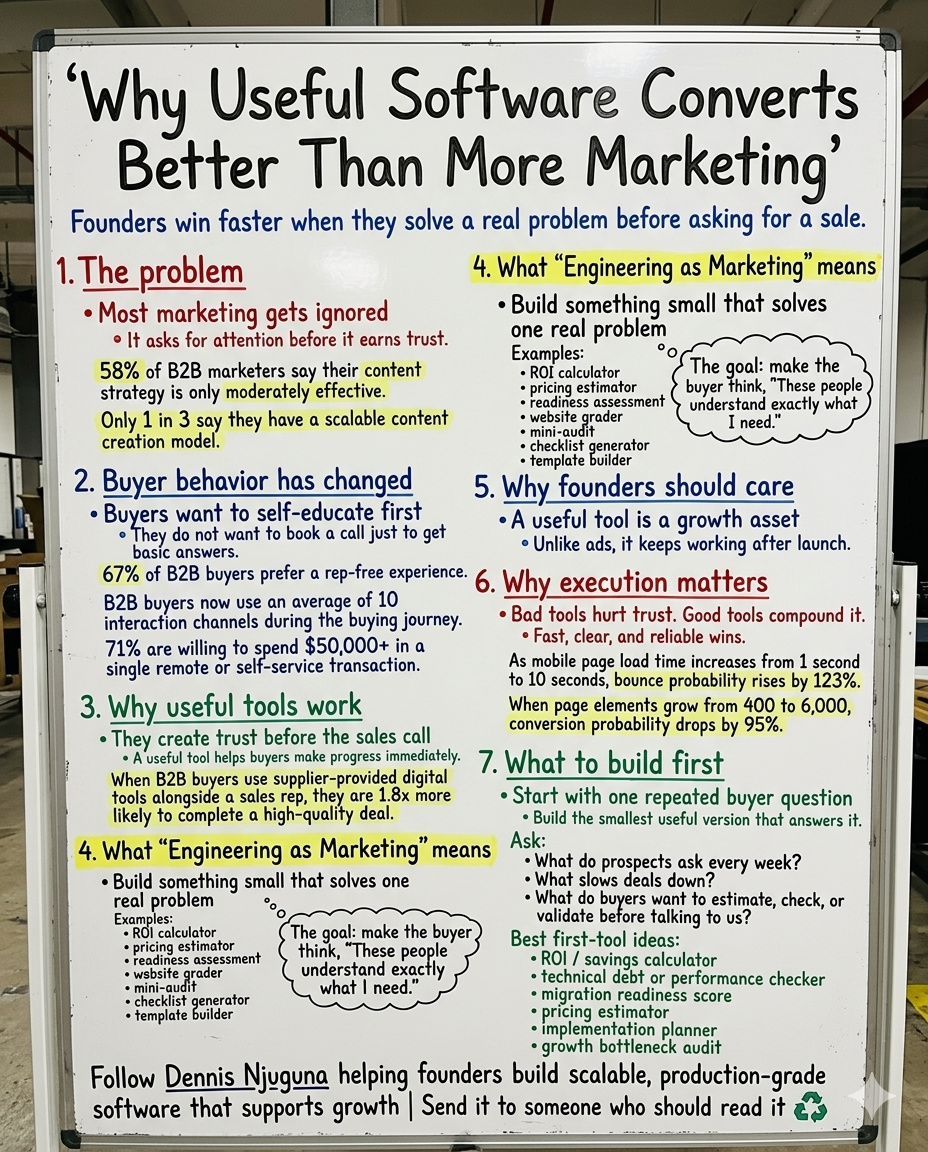 ‘Why Useful Software Converts
Better Than More Marketing’
Founders win faster when they solve a real problem before asking for a sale.
1. The problem
• Most marketing gets ignored
• It asks for attention before it earns trust.
58% of B2B marketers say their content
strategy is only moderately effective.
Only 1 in 3 say they have a scalable content
creation model.
2. Buyer behavior has changed
• Buyers want to self-educate first
• They do not want to book a call just to get
basic answers.
67% of B2B buyers prefer a rep-free experience.
B2B buyers now use an average of 10
interaction channels during the buying journey.
71% are willing to spend $50,000+ in a
single remote or self-service transaction.
3. Why useful tools work
• They create trust before the sales call
• A useful tool helps buyers make progress immediately.
When B2B buyers use supplier-provided digital
tools alongside a sales rep, they are 1.8x more
likely to complete a high-quality deal.
4. What “Engineering as Marketing” means
• Build something small that solves one
real problem
Examples:
• ROI calculator
• pricing estimator
• readiness assessment
• wsbsite grader
• mini-audit
• checklist generator
• template builder
The goal: make the buyer
think, “These people
understand exactly
what I need.”
4. What “Engineering as Marketing” means
• Build something small that solves
one real problem
Examples:
• ROI calculator
• pricing estimator
• readiness assessment
• website grader
• mini-audit
• checklist generator
• template builder
The goal: make the
buyer think, "These people
understand exactly what
I need."
5. Why founders should care
• A useful tool is a growth asset
• Unlike ads, it keeps working after launch.
6. Why execution matters
• Bad tools hurt trust. Good tools compound it.
• Fast, clear, and reliable wins.
As mobile page load time increases from 1 second
to 10 seconds, bounce probability rises by 123%.
When page elements grow from 400 to 6,000,
conversion probability drops by 95%.
7. What to build first
• Start with one repeated buyer question
• Build the smallest useful version that answers it.
Ask:
• What do prospects ask every week?
• What slows deals down?
• What do buyers want to estimate, check, or
validate before talking to us?
Best first-tool ideas:
• ROI / savings calculator
• technical debt or performance checker
• migration readiness score
• pricing estimator
• implementation planner
• growth bottleneck audit
Follow Dennis Njuguna helping founders build scalable, production-grade
software that supports growth | Send it to someone who should read it